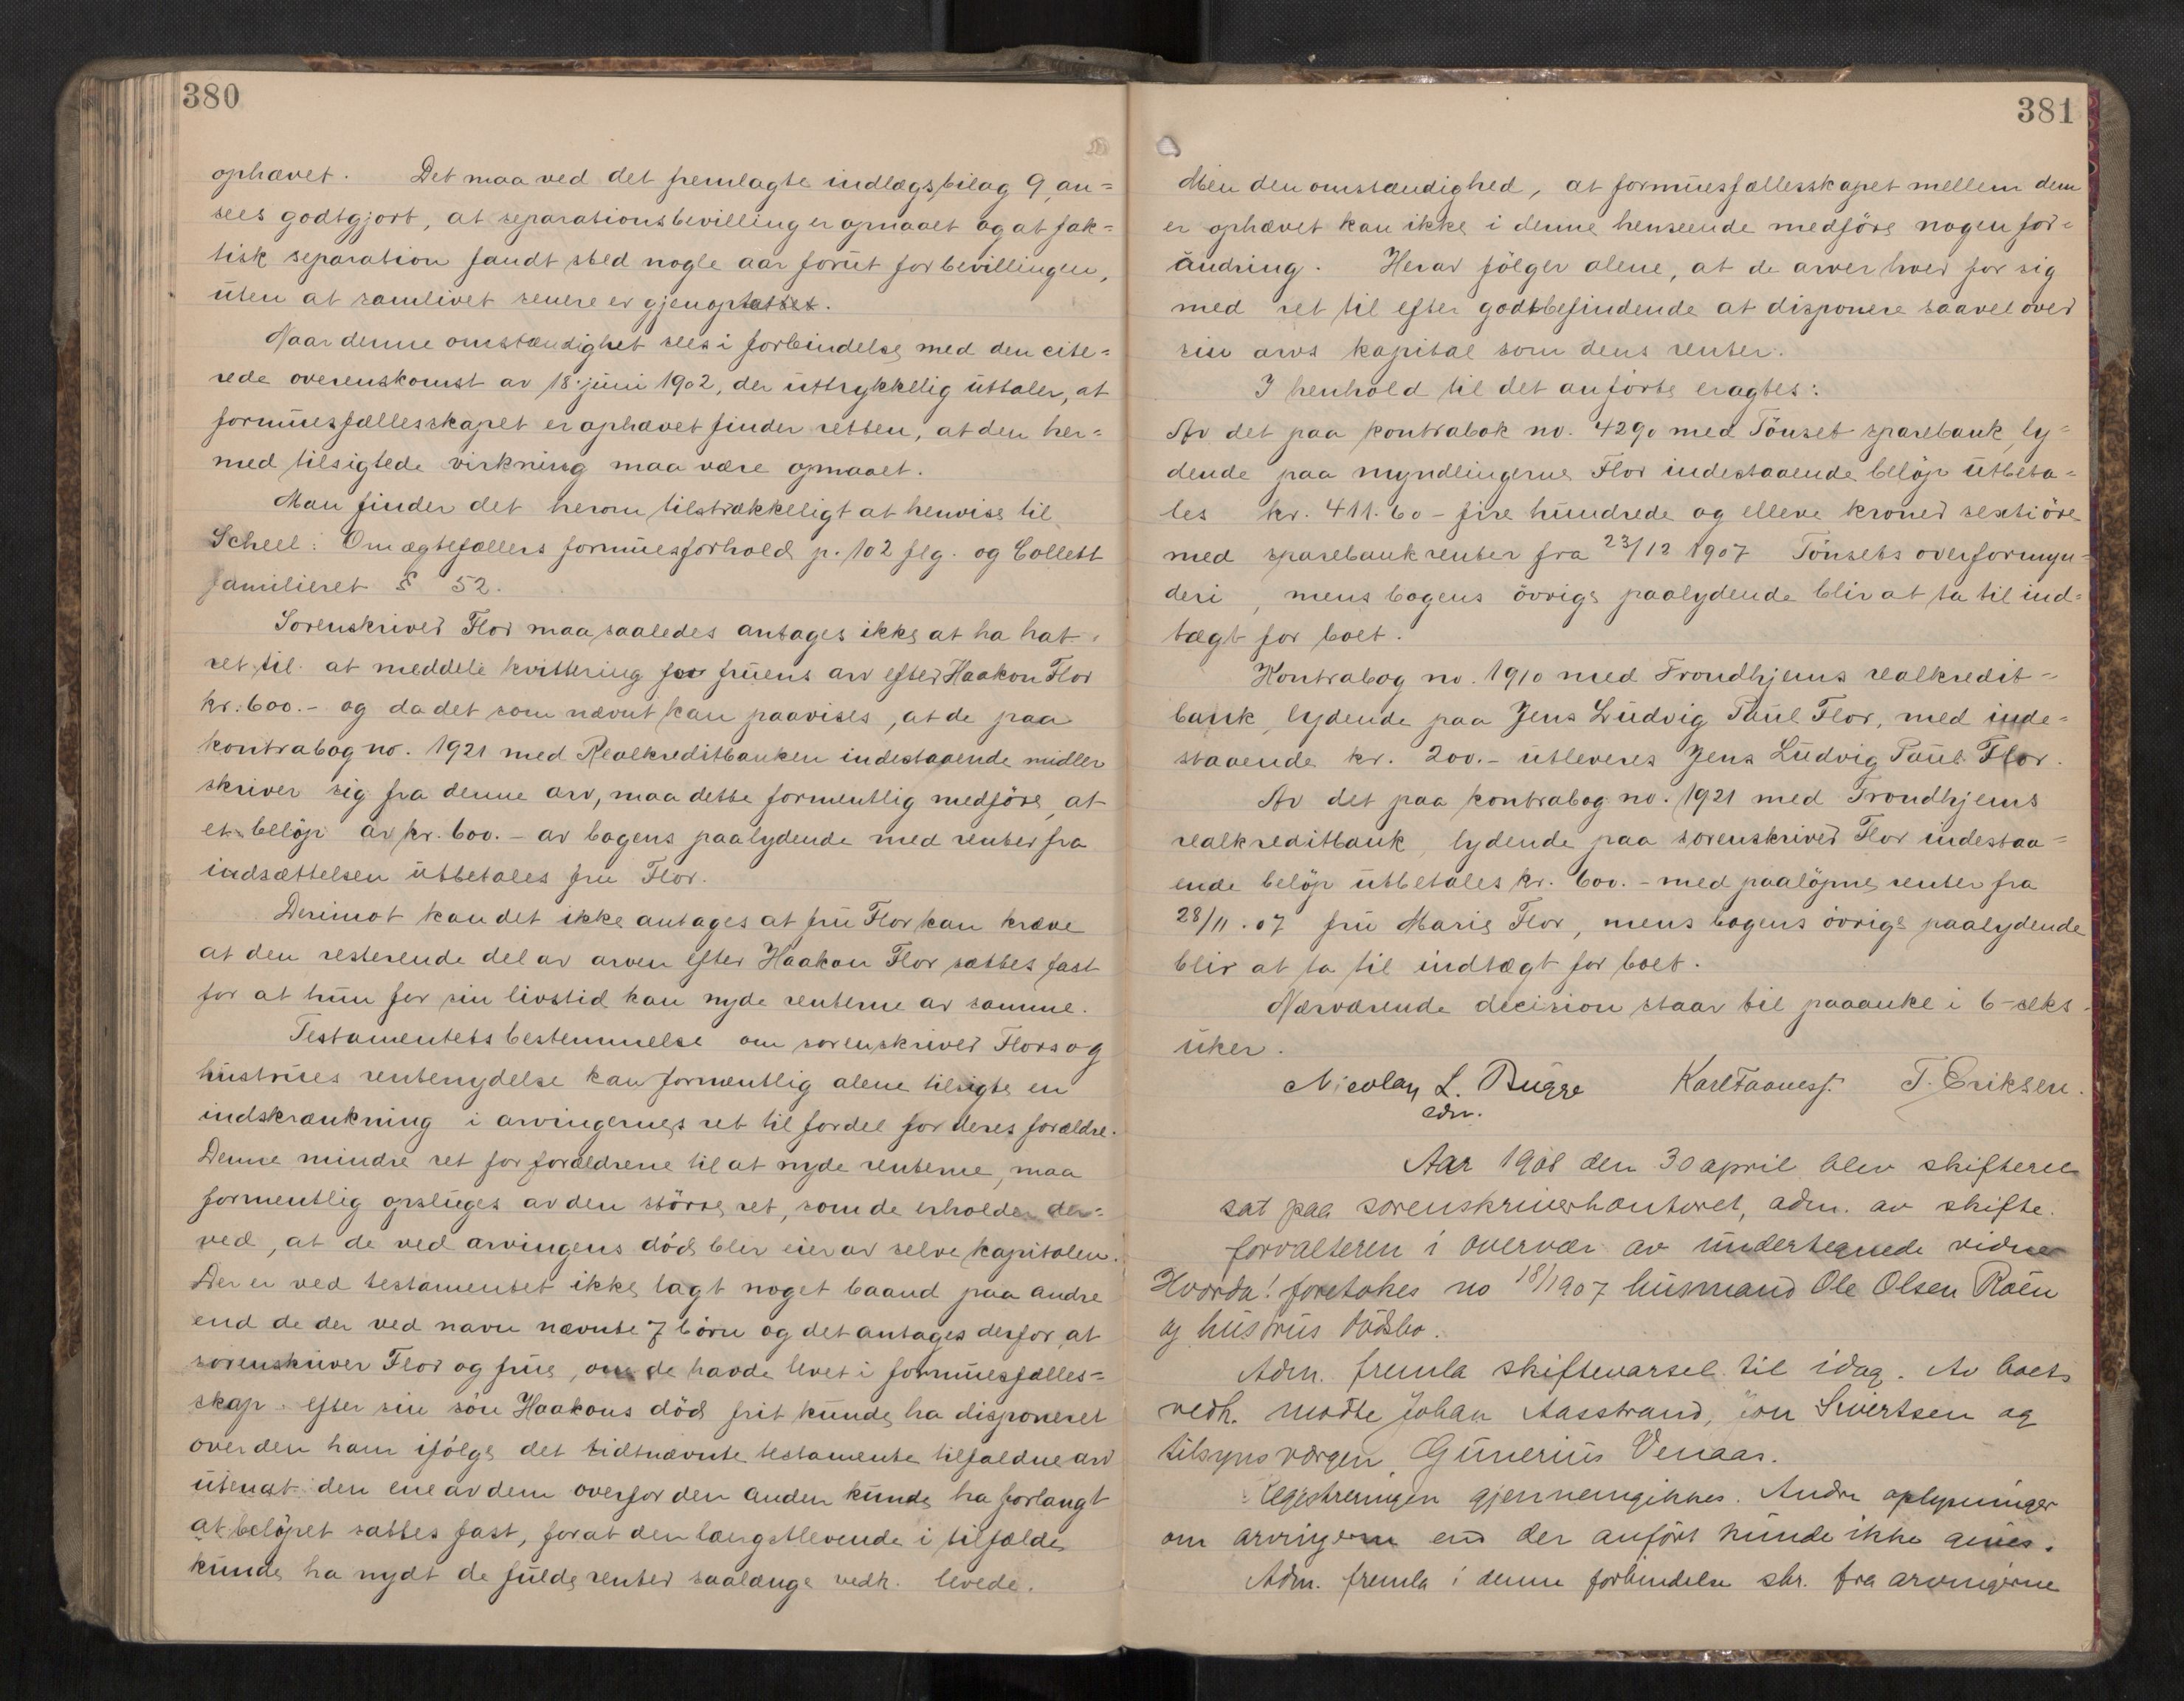 380
ophævet. Det maa ved det fremlagte indlægs, bilag 9, an=
sees godtgjort, at separationsbevilling er opnaaet og at fak=
tisk separation fandt sted nogle aar forut for bevillingen,
uten at samlivet senere er gjenoptattet.
Naar denne omstændighet sees i forbindelse med den cite=
rede overenskomst av 18. juni 1902, der uttrykkelig uttaler, at
formuesfællesskapet er ophævet finder retten, at den her=
med tilsigtede virkning maa være opnaaet.
Man finder det herom tilstrækkeligt at henvise til
Scheel: Om ægtefællers formuesforhold p. 102 flg. og Collett
familieret § 52.
Sorenskriver Flor maa saaledes antages ikke at ha hat
ret til at meddele kvittering for fruens arv efter Haakon Flor
kr. 600.- og da det som nævnt kan paavises, at de paa
kontrabog no. 1921 med Realkreditbanken indestaaende midler
skriver sig fra denne arv, maa dette formentlig medføre, at
et beløp av kr. 600.- av bogens paalydende med renter fra
indsættelsen utbetales fru Flor.
Derimot kan det ikke antages at fru Flor kan kræve
at den resterende del av arven efter Haakon Flor sættes fast
for at hun for sin livstid kan nyde renterne av samme.
Testamentets bestemmelse om sorenskriver Flors og
hustrues rentenydelse kan formentlig alene tilsigte en
indskrænkning i arvingernes ret til fordel for deres forældre.
Denne mindre ret for forældrene til at nyde renterne, maa
formentlig opsluges av den större ret, som de erholder der=
ved, at de ved arvingens död blir eier av selve kapitalen.
Der er ved testamentet ikke lagt noget baand paa andre
end de der ved navn nævnte 7 börn og det antages derfor, at
sorenskriver Flor og frue, om de havde levet i formuesfælles=
skap efter sin sön Haakons död frit kunde ha disponeret
over den ham ifölge det tidtnævnte testamente tilfaldne arv
uten at den ene av dem overfor den anden kunde ha forlangt
at belöpet sattes fast, for at den længstlevende i tilfælde
kunde ha nydt de fulde renter saalænge vedk. levede.
381
Men den omstændighed, at formuesfællesskapet mellem dem
er ophævet kan ikke i denne henseende medföre nogen for=
ändring. Herav fölger alene, at de arver hver for sig
med ret til efter godtbefindende at disponere saavel over
sin arvs kapital som dens renter.
I henhold til det anförte eragtes:
Av det paa kontrabok no. 4290 med Tönset sparebank, ly=
dende paa myndlingerne Flor indestaaende belöp utbeta=
les kr. 411.60 - fire hundrede og elleve kroner sextiöre
med sparebankrenter fra 23/12 1907 Tönsets overformyn=
deri, mens bogens övrige paalydende blir at ta til ind=
tægt for boet.
Kontrabog no. 1910 med Trondhjems realkredit=
bank, lydende paa Jens Ludvig Paul Flor, med inde=
staaende kr. 200.- utleveres Jens Ludvig Paul Flor.
Av det paa kontrabog no. 1921 med Trondhjems
realkreditbank, lydende paa sorenskriver Flor indestaa=
ende belöp utbetales kr. 600.- med paalöpne renter fra
28/11.07 fru Marie Flor, mens bogens övrige paalydende
blir at ta til indtægt for boet.
Nærværende decision staar til paaanke i 6-seks
uker.
Nicolay L. Bugge Karl T. Eriksen.
adm.
Aar 1908 den 30 april blev skifteret
sat paa sorenskriverkontoret, adm. av skifte
forvalteren i overvær av undertegnede vidne
Hvorda! foretokes no 18/1907 husmand Ole Olsen Roen
og hustrus dödsbo.
Adm. fremla skiftevarsel til idag. Av boets
vedk. mødte Johan Aasstrand, Jon Sivertsen og
tilsynsværgen Gunerius Venaas.
Registreringen gjennemgikkes. Andre oplysninger
om arvingerne end der anfört kunde ikke gives.
Adm. fremla i denne forbindelse skr. fra arvingerne